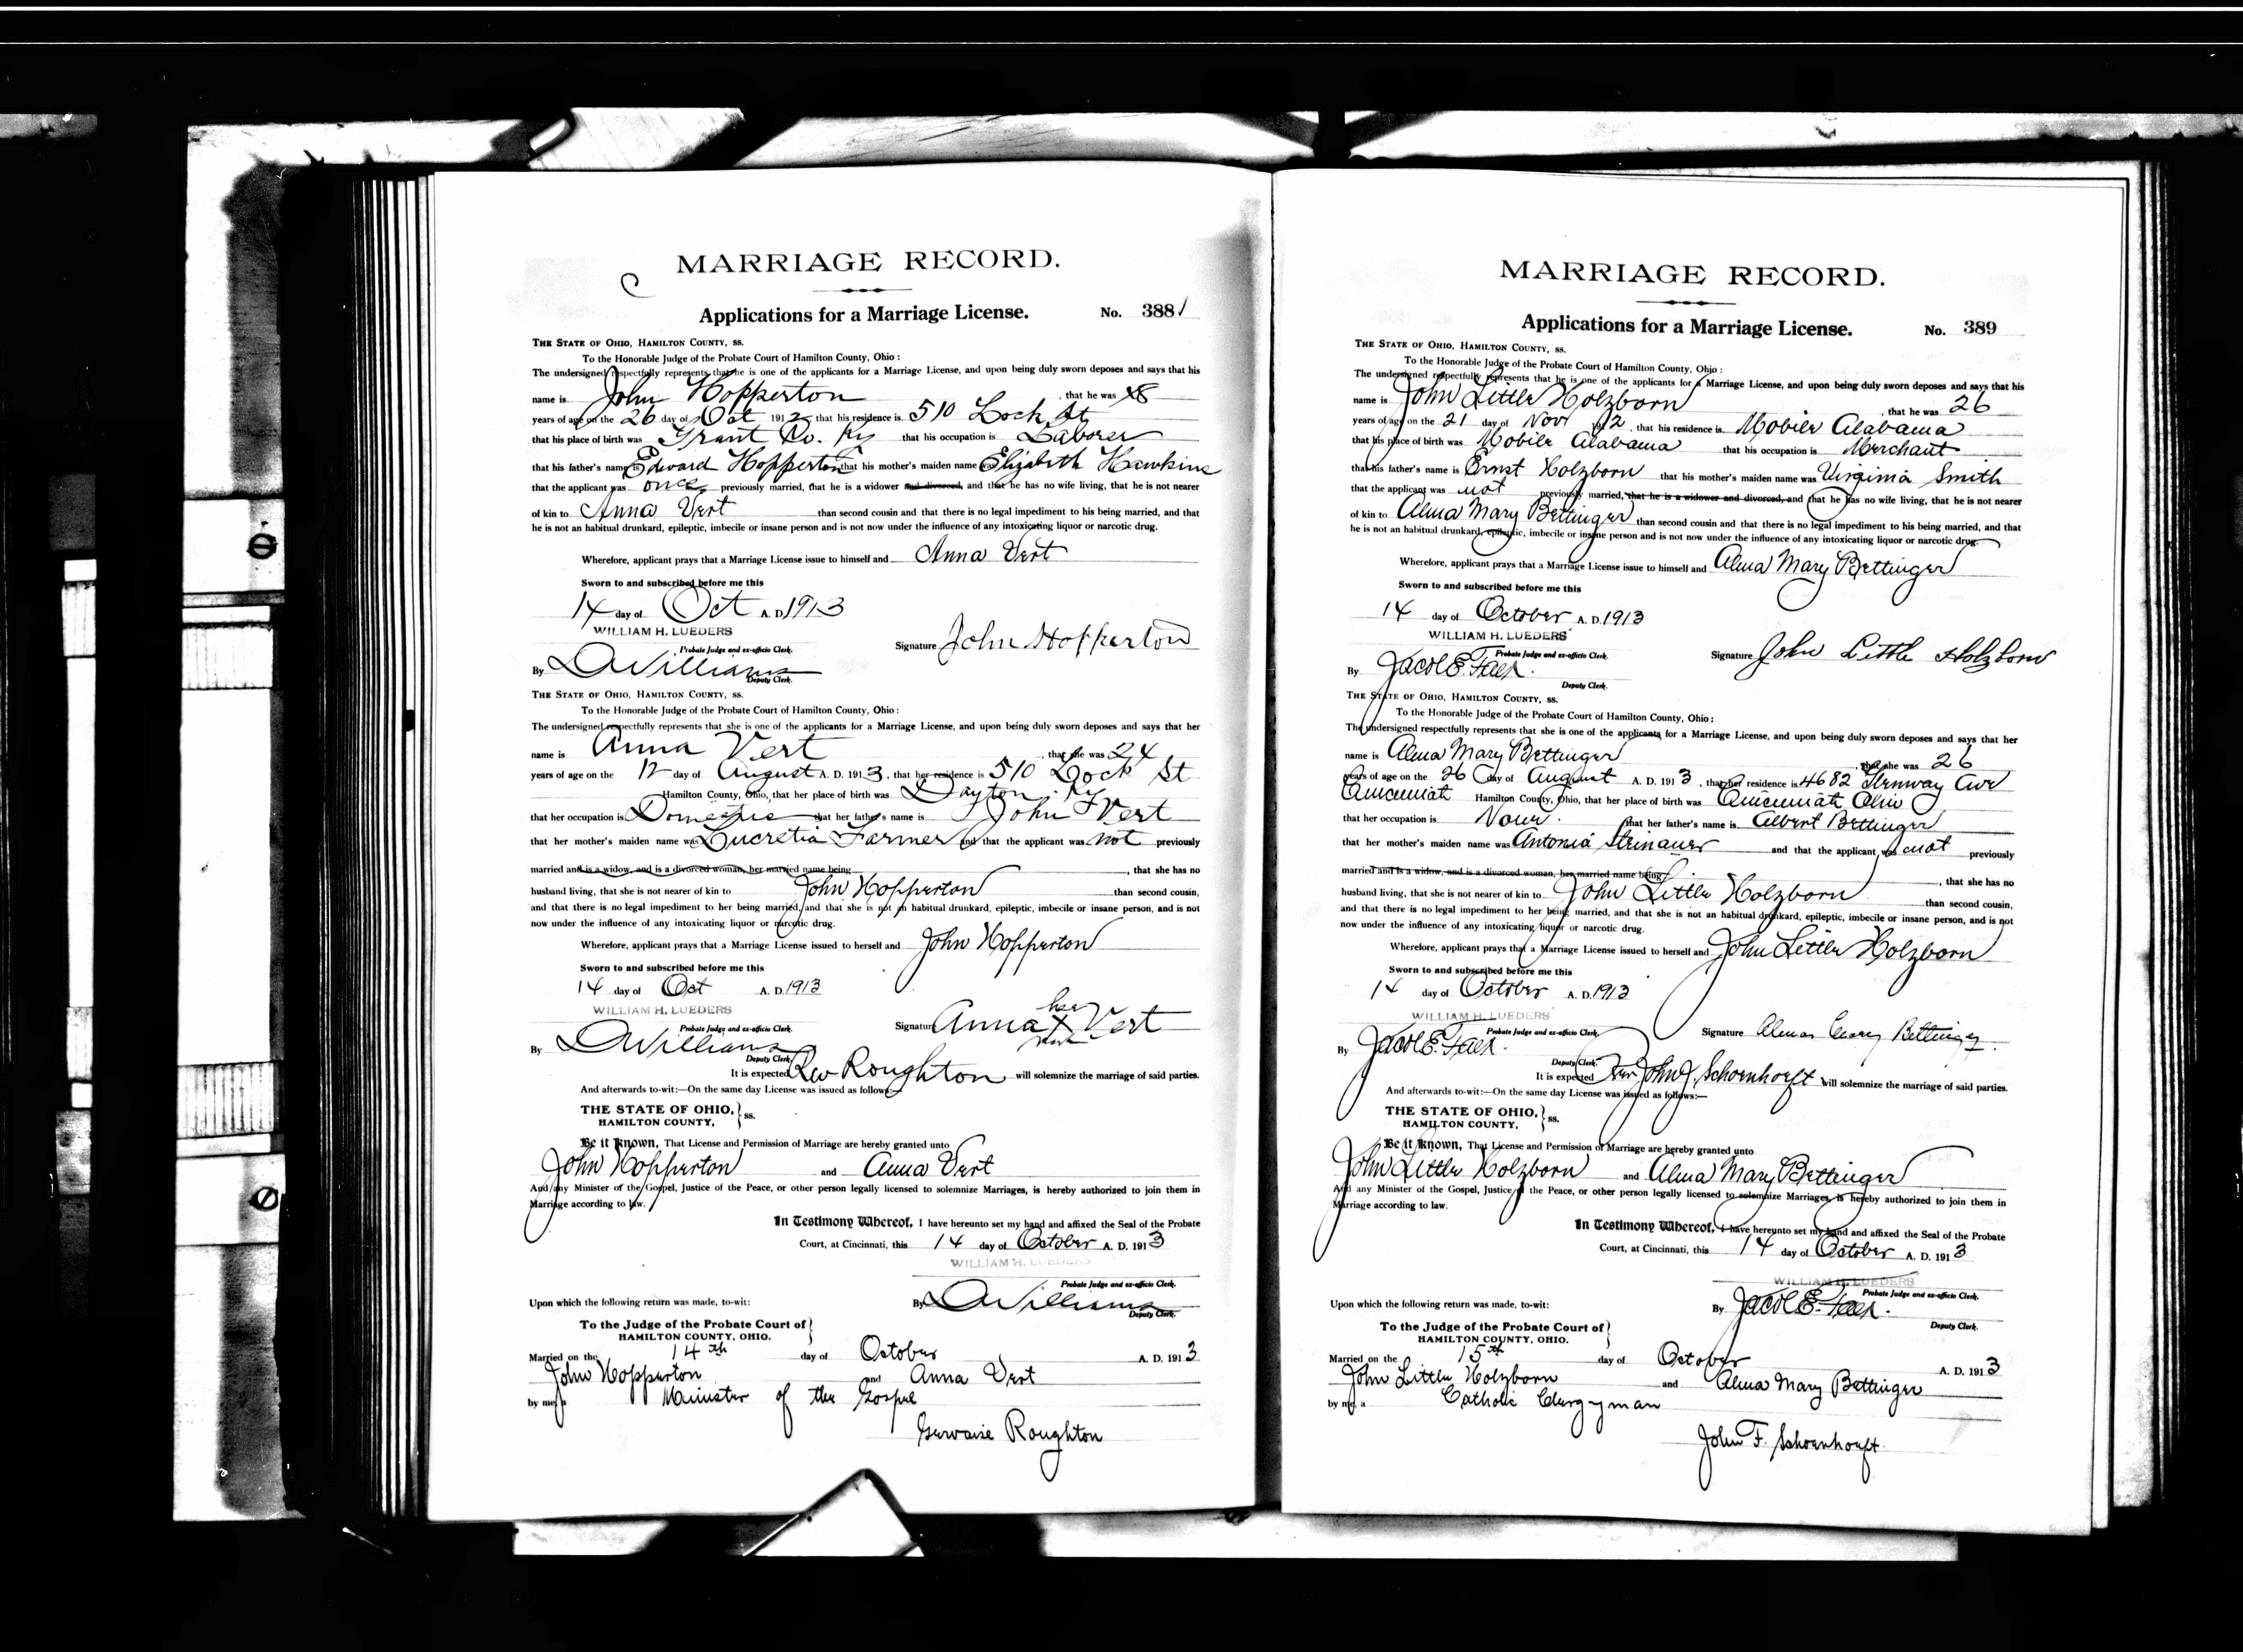 MARRIAGE RECORD.
C
Applications for a Marriage License. No. 388
THE STATE OF OHIO, HAMILTON COUNTY, ss.
To the Honorable Judge of the Probate Court of Hamilton County, Ohio:
The undersigned respectfully represents that he is one of the applicants for a Marriage License, and upon being duly sworn deposes and says that his
name is John Hopperton, that he was
years of age on the 26 day of Oct 1912 that his residence is 510 Lock St
that his place of birth was Grant Co. Ky that his occupation is Laborer
that his father's name is Edward Hopperton that his mother's maiden name was Elizabeth Hawkins
that the applicant was once previously married, that he is a widower and divorced, and that he has no wife living, that he is not nearer
of kin to Anna Vert than second cousin and that there is no legal impediment to his being married, and that
he is not an habitual drunkard, epileptic, imbecile or insane person and is not now under the influence of any intoxicating liquor or narcotic drug.
Wherefore, applicant prays that a Marriage License issue to himself and Anna Vert
Sworn to and subscribed before me this
14 day of Oct A. D. 1913
WILLIAM H. LUEDERS
Probate Judge and ex-officio Clerk.
Signature John Hopperton
By D Williams
Deputy Clerk.
THE STATE OF OHIO, HAMILTON COUNTY, ss.
To the Honorable Judge of the Probate Court of Hamilton County, Ohio:
The undersigned respectfully represents that she is one of the applicants for a Marriage License, and upon being duly sworn deposes and says that her
name is Anna Vert, that she was 24
years of age on the 12 day of August A. D. 1913, that her residence is 510 Lock St
Hamilton County, Ohio, that her place of birth was Dayton Ky
that her occupation is Domestic that her father's name is John Vert
that her mother's maiden name was Lucretia Farmer and that the applicant was not previously
married and is a widow, and is a divorced woman, her married name being, that she has no
husband living, that she is not nearer of kin to John Hopperton than second cousin,
and that there is no legal impediment to her being married, and that she is not an habitual drunkard, epileptic, imbecile or insane person, and is not
now under the influence of any intoxicating liquor or narcotic drug.
Wherefore, applicant prays that a Marriage License issued to herself and John Hopperton
Sworn to and subscribed before me this
14 day of Oct A. D. 1913
WILLIAM H. LUEDERS
Probate Judge and ex-officio Clerk.
her
Signature Anna X Vert
mark
By D Williams
Deputy Clerk.
It is expected Rev Roughton will solemnize the marriage of said parties.
And afterwards to-wit:—On the same day License was issued as follows:—
THE STATE OF OHIO, } ss.
HAMILTON COUNTY,
Be it Known, That License and Permission of Marriage are hereby granted unto
John Hopperton and Anna Vert
And any Minister of the Gospel, Justice of the Peace, or other person legally licensed to solemnize Marriages, is hereby authorized to join them in
Marriage according to law.
In Testimony Whereof, I have hereunto set my hand and affixed the Seal of the Probate
Court, at Cincinnati, this 14 day of October A. D. 1913
WILLIAM H. LUEDERS
Probate Judge and ex-officio Clerk.
Upon which the following return was made, to-wit:
By D Williams
Deputy Clerk.
To the Judge of the Probate Court of }
HAMILTON COUNTY, OHIO.
Married on the 14th day of October A. D. 1913
John Hopperton and Anna Vert
by me, a Minister of the Gospel
Gervaise Roughton
MARRIAGE RECORD.
Applications for a Marriage License. No. 389
THE STATE OF OHIO, HAMILTON COUNTY, ss.
To the Honorable Judge of the Probate Court of Hamilton County, Ohio:
The undersigned respectfully represents that he is one of the applicants for a Marriage License, and upon being duly sworn deposes and says that his
name is John Little Holzborn, that he was 26
years of age on the 21 day of Nov 1912, that his residence is Mobile Alabama
that his place of birth was Mobile Alabama that his occupation is Merchant
that his father's name is Ernst Holzborn that his mother's maiden name was Virginia Smith
that the applicant was not previously married, that he is a widower and divorced, and that he has no wife living, that he is not nearer
of kin to Alma Mary Bettinger than second cousin and that there is no legal impediment to his being married, and that
he is not an habitual drunkard, epileptic, imbecile or insane person and is not now under the influence of any intoxicating liquor or narcotic drug.
Wherefore, applicant prays that a Marriage License issue to himself and Alma Mary Bettinger
Sworn to and subscribed before me this
14 day of October A. D. 1913
WILLIAM H. LUEDERS
Probate Judge and ex-officio Clerk.
Signature John Little Holzborn
By Jacob E.
Deputy Clerk.
THE STATE OF OHIO, HAMILTON COUNTY, ss.
To the Honorable Judge of the Probate Court of Hamilton County, Ohio:
The undersigned respectfully represents that she is one of the applicants for a Marriage License, and upon being duly sworn deposes and says that her
name is Alma Mary Bettinger, that she was 26
years of age on the 26 day of August A. D. 1913, that her residence is 4682 Ave
Cincinnati Hamilton County, Ohio, that her place of birth was Cincinnati Ohio
that her occupation is None. that her father's name is Albert Bettinger
that her mother's maiden name was Antonia Steinauer and that the applicant was not previously
married and is a widow, and is a divorced woman, her married name being, that she has no
husband living, that she is not nearer of kin to John Little Holzborn than second cousin,
and that there is no legal impediment to her being married, and that she is not an habitual drunkard, epileptic, imbecile or insane person, and is not
now under the influence of any intoxicating liquor or narcotic drug.
Wherefore, applicant prays that a Marriage License issued to herself and John Little Holzborn
Sworn to and subscribed before me this
14 day of October A. D. 1913
WILLIAM H. LUEDERS
Probate Judge and ex-officio Clerk.
Signature Alma Mary Bettinger.
By Jacob E.
Deputy Clerk.
It is expected Rev John J. Schoenhoeft will solemnize the marriage of said parties.
And afterwards to-wit:—On the same day License was issued as follows:—
THE STATE OF OHIO, } ss.
HAMILTON COUNTY,
Be it Known, That License and Permission of Marriage are hereby granted unto
John Little Holzborn and Alma Mary Bettinger
And any Minister of the Gospel, Justice of the Peace, or other person legally licensed to solemnize Marriages, is hereby authorized to join them in
Marriage according to law.
In Testimony Whereof, I have hereunto set my hand and affixed the Seal of the Probate
Court, at Cincinnati, this 14 day of October A. D. 1913
WILLIAM H. LUEDERS
Probate Judge and ex-officio Clerk.
Upon which the following return was made, to-wit:
By Jacob E.
Deputy Clerk.
To the Judge of the Probate Court of }
HAMILTON COUNTY, OHIO.
Married on the 15th day of October A. D. 1913
John Little Holzborn and Alma Mary Bettinger
by me, a Catholic Clergyman
John F. Schoenhoeft